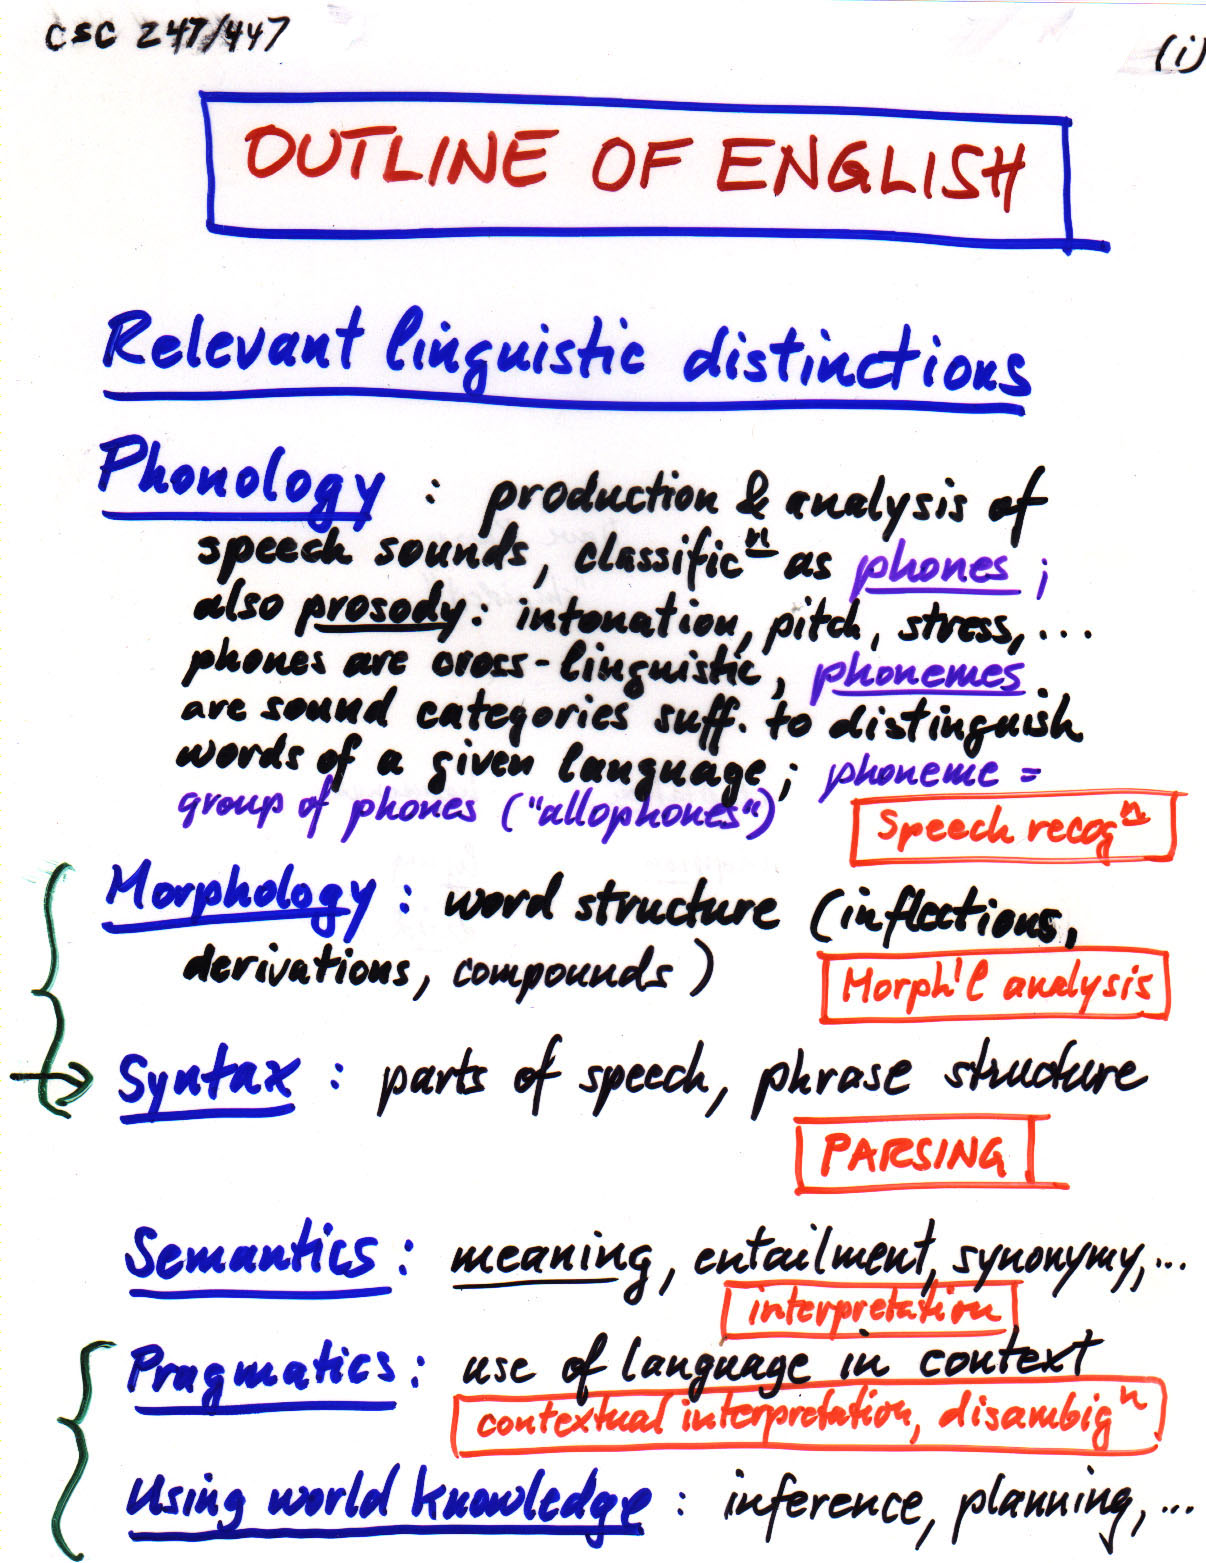 CSC 247/447
(i)
OUTLINE OF ENGLISH
Relevant linguistic distinctions
Phonology : production & analysis of
speech sounds, classificⁿ as phones ;
also prosody: intonation, pitch, stress, ...
phones are cross-linguistic, phonemes
are sound categories suff. to distinguish
words of a given language; phoneme =
group of phones ("allophones")
Speech recogⁿ
Morphology : word structure (inflections,
derivations, compounds)
Morph'l analysis
Syntax : parts of speech, phrase structure
PARSING
Semantics : meaning, entailment, synonymy, ...
interpretation
Pragmatics : use of language in context
contextual interpretation, disambigⁿ
Using world knowledge : inference, planning, ...